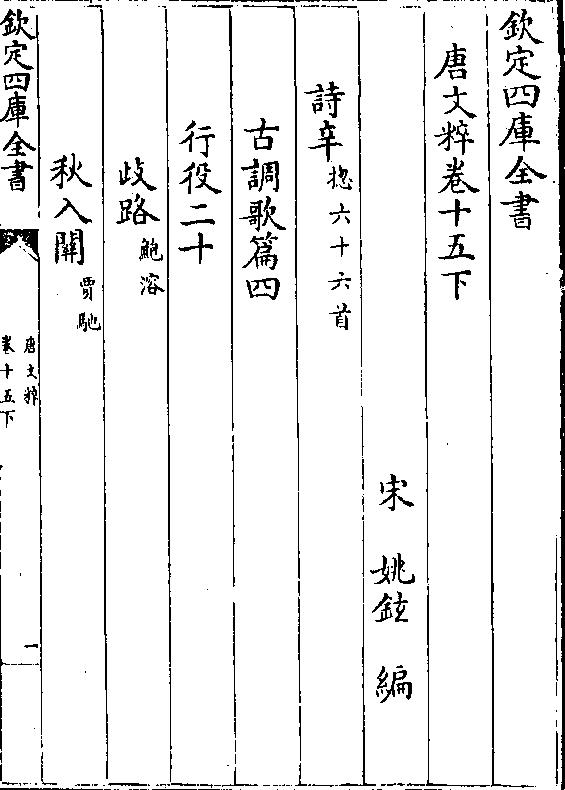 欽定四庫全書
唐文粹卷十五下
宋 姚鉉 編
詩辛揔六十六首
古調歌篇四
行役二十
歧路鮑溶
秋入關賈馳
欽定四庫全書
唐文粹
卷十五下
一